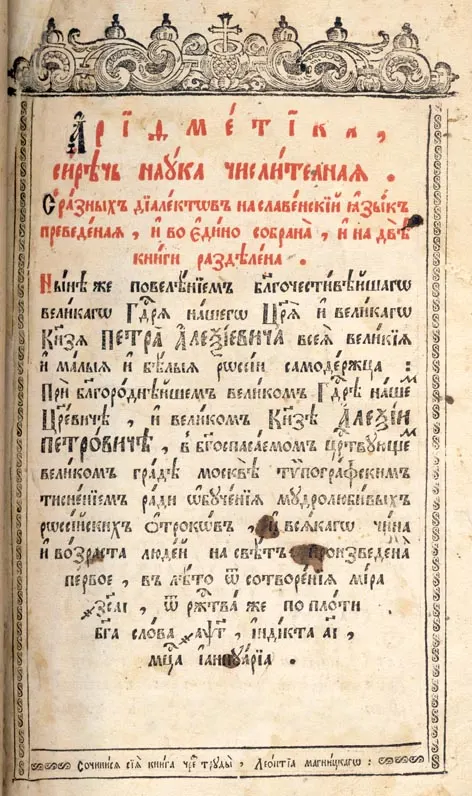 А́рїѳме́тїка,
сирѣ́чь нау́ка числи́телная.
С̾ ра́зныхъ дїале́ктѡвъ на славе́нскїй ѧ҆зы́къ
преведе́ная, и҆ во є҆ди́но собрана̀, и҆ на двѣ̀
кни́ги раздѣле́на.
Ны́нѣ же повелѣ́нїемъ благочести́вѣйшагѡ
вели́кагѡ Гдⷭ҇рѧ на́шегѡ Цр҃ѧ̀ и҆ вели́кагѡ
Кн҃зѧ ПЕТРА̀ А҆ЛЕѮІ́ЕВИЧА всеѧ̀ вели́кїѧ
и҆ ма́лыѧ и҆ бѣ́лыѧ рѡссі́и самоде́ржца:
Прѝ бл҃горо́днѣйшемъ вели́комъ Гдⷭ҇рѣ на́шемъ
Цр҃е́вичѣ, и҆ вели́комъ Кн҃зѣ А҆ЛЕѮІ́И
ПЕТРО́ВИЧѢ, в̾ бг҃оспаса́емомъ црⷭ҇твующемъ
вели́комъ гра́дѣ москвѣ̀ тѵпогра́фскимъ
тисне́нїемъ ра́ди ѡ҆буче́нїѧ мудролюби́выхъ
рѡссі́йскихъ ѻ҆́трокѡвъ, и҆ всѧ́кагѡ чи́на
и҆ во́зраста люде́й на свѣ́тъ произведена̀
пе́рвое, въ лѣ́то ѿ сотворе́нїѧ мі́ра
҂зса҃і, ѿ ржⷭ҇тва̀ же по пло́ти
бг҃а сло́ва ҂аѱг҃, і҆нді́кта а҃і,
мцⷭ҇а і҆аннуа́рїа.
Сочини́сѧ сїѧ̀ кни́га чрез̾ труды̀, Лео́нтїа магни́цкагѡ: